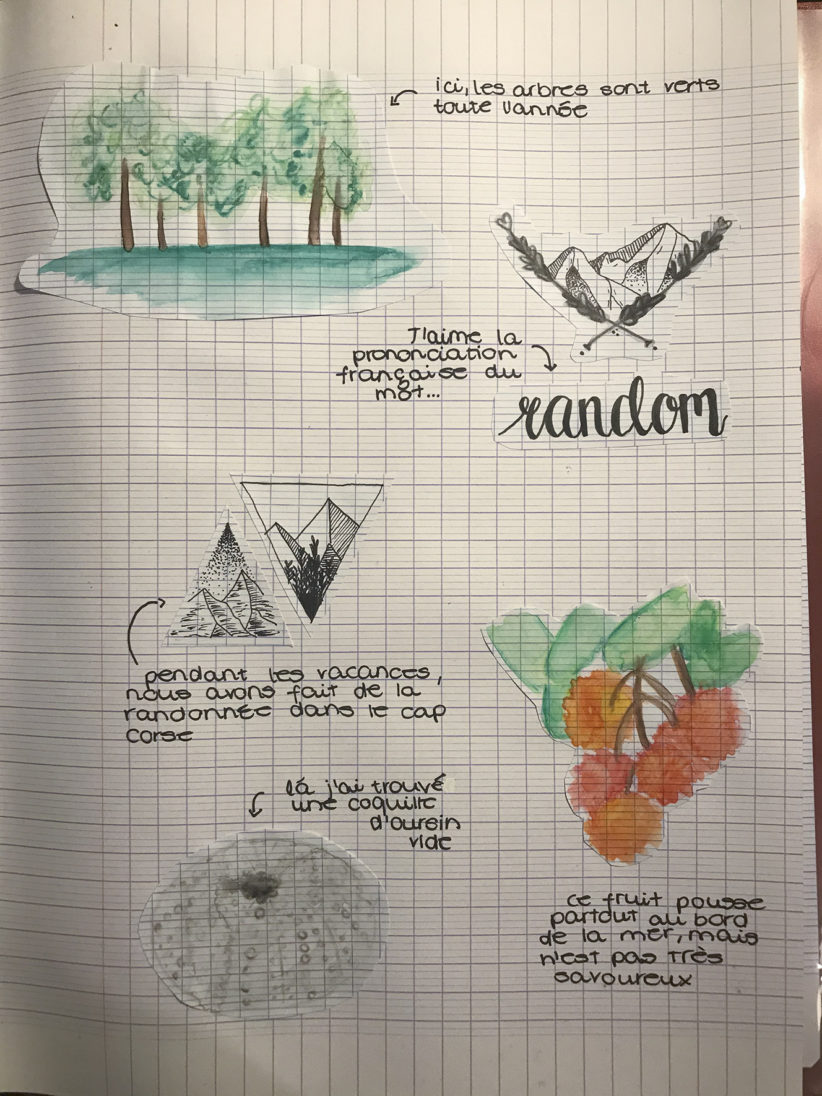 ici, les arbres sont verts
toute l'année
J'aime la
prononciation
française du
môt...
random
pendant les vacances,
nous avons fait de la
randonnée dans le cap
corse
là j'ai trouvé
une coquille
d'oursin
vide
ce fruit pousse
partout au bord
de la mer, mais
n'est pas très
savoureux